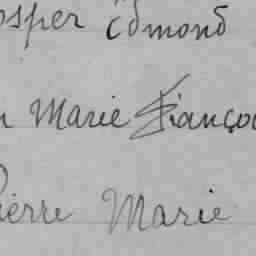 osper Edmond
n Marie Françoi
Pierre Marie